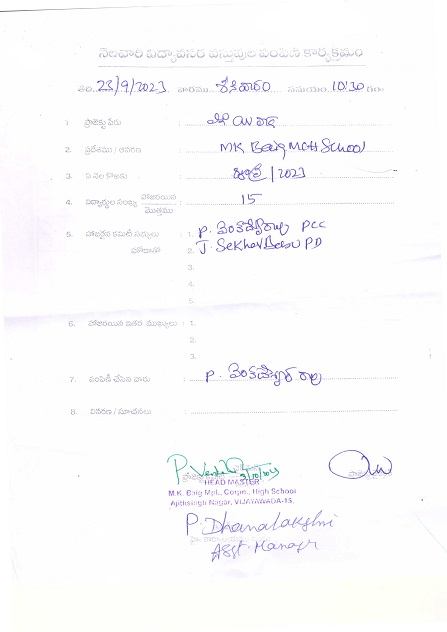 నెలవారి విద్యావసర వస్తువుల పంపిణీ కార్యక్రమం
తేది. 23/9/2023 వారము. శనివారం సమయం. 10:30 గం॥
1. ప్రాజెక్టు పేరు :
2. ప్రదేశము / ఆవరణ : MK Baig MCH School
3. ఏ నెల కొరకు : / 2023
4. విద్యార్థుల సంఖ్య హాజరయిన / మొత్తము : 15
5. హాజరైన కమిటీ సభ్యులు : 1. P. వెంకటేశ్వరరావు PCC
హోదాతో 2. J. Sekhar Babu PD
3.
4.
5.
6. హాజరయిన ఇతర ముఖ్యులు : 1.
2.
3.
7. పంపిణీ చేసిన వారు : P. వెంకటేశ్వర రావు
8. వివరణ / సూచనలు :
HEAD MASTER
M.K. Baig Mpl., Corpn., High School
Ajithsingh Nagar, VIJAYAWADA-15.
P. Dhanalakshmi
Asst. Manager